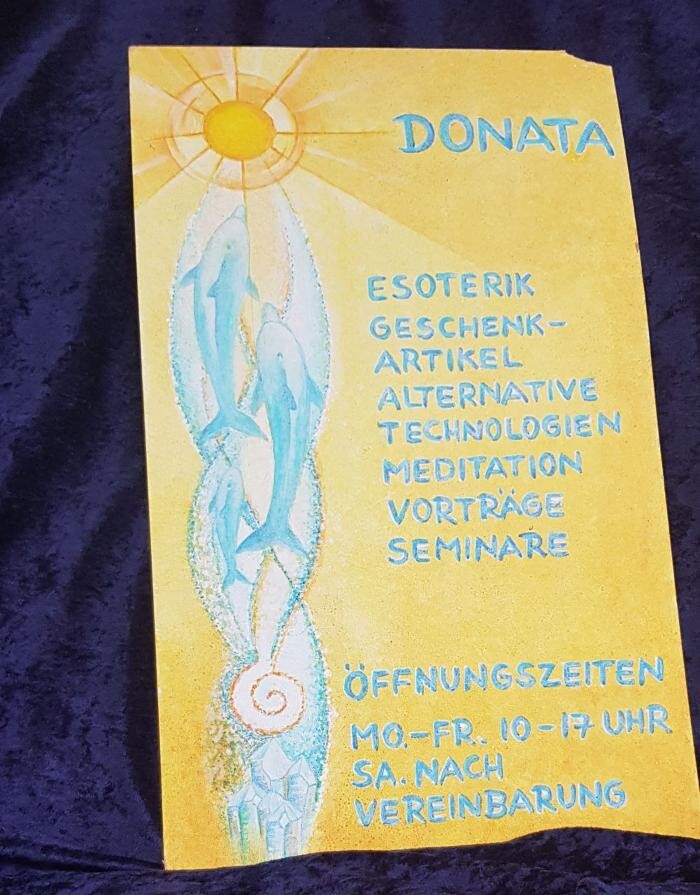 DONATA
ESOTERIK
GESCHENK-
ARTIKEL
ALTERNATIVE
TECHNOLOGIEN
MEDITATION
VORTRÄGE
SEMINARE
ÖFFNUNGSZEITEN
MO.-FR. 10-17 UHR
SA. NACH
VEREINBARUNG